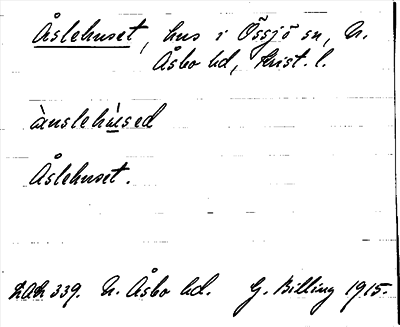 Åslehuset, hus i Össjö sn, N.
Åsbo hd, Krist. l.
ànslehúsed
Åslehuset.
LAL 339. N. Åsbo hd. G. Billing 1915.